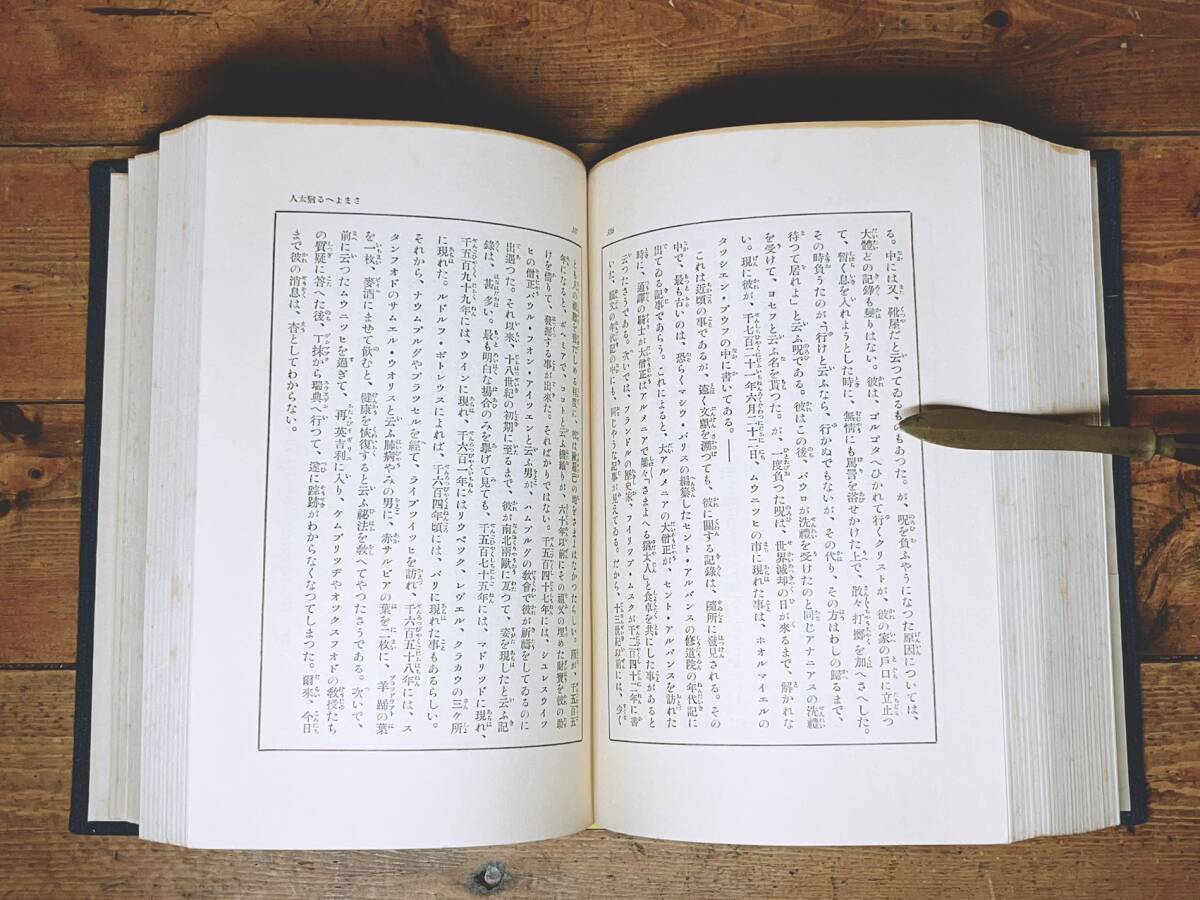 る。中には又、靴屋だと云つてゐるものもあつた。が、呪を負ふやうになつた原因については、
大體どの記録も變りはない。彼は、ゴルゴタへひかれて行くクリストが、彼の家の戸口に立止つ
て、暫く息を入れようとした時に、無情にも罵詈を浴せかけた上で、散々打擲を加へさへした。
その時負うたのが「行けと云ふなら、行かぬでもないが、その代り、その方はわしの歸るまで、
待つて居れよ」と云ふ呪である。彼はこの後、パウロが洗禮を受けたのと同じアナニアスの洗禮
を受けて、ヨセフと云ふ名を貰つた。が、一度負つた呪は、世界滅却の日が來るまで、解かれな
い。現に彼が、千七百二十一年六月二十二日、ムウニツヒの市に現れた事は、ホオルマイエルの
タツシエン・ブウフの中に書いてある。――
これは近頃の事であるが、遠く文獻を溯つても、彼に關する記録は、隨所に發見される。その
中で、最も古いのは、恐らくマシウ・パリスの編纂したセント・アルバンスの修道院の年代記に
出てゐる記事であらう。これによると、大アルメニアの大僧正が、セント・アルバンスを訪れた
時に、通譯の騎士が大僧正はアルメニアで屡々「さまよへる猶太人」と食卓を共にした事があると
云つたさうである。次いでは、フランドルの歴史家、フイリツプ・ムスクが千二百四十二年に書
いた、韻文の年代記の中にも、同じやうな記事が見えてゐる。だから、十三世紀以前には、少く
さまよへる猶太人
年になると、ボヘミアで、ココトと云ふ機織りが、六十年以前にその祖父の埋めた財寶を彼の助
けを借りて、發掘する事が出來た。そればかりではない。千五百四十七年には、シユレスウイツ
ヒの僧正パウル・フオン・アイツエンと云ふ男が、ハムブルグの教會で彼が祈禱をしてゐるのに
出遇つた。それ以來、十八世紀の初期に至るまで、彼が南北兩歐に亙つて、姿を現したと云ふ記
録は、甚だ多い。最も明白な場合のみを擧げて見ても、千五百七十五年には、マドリツドに現れ、
千五百九十九年には、ウインに現れ、千六百一年にはリウベツク、レヴエル、クラカウの三ケ所
に現れた。ルドルフ・ボトレウスによれば、千六百四年頃には、パリに現れた事もあるらしい。
それから、ナウムブルグやブラツセルを經て、ライプツイツヒを訪れ、千六百五十八年には、ス
タンフオドのサムエル・ウオリスと云ふ肺病やみの男に、赤サルビアの葉を二枚に、羊蹄の葉
を一枚、麥酒にませて飲むと、健康を恢復すると云ふ祕法を教へてやつたさうである。次いで、
前に云つたムウニツヒを過ぎて、再英吉利に入り、ケムブリツヂやオツクスフオドの教授たち
の質疑に答へた後、丁抹から瑞典へ行つて、遂に踪跡がわからなくなつてしまつた。爾來、今日
まで彼の消息は、杳としてわからない。